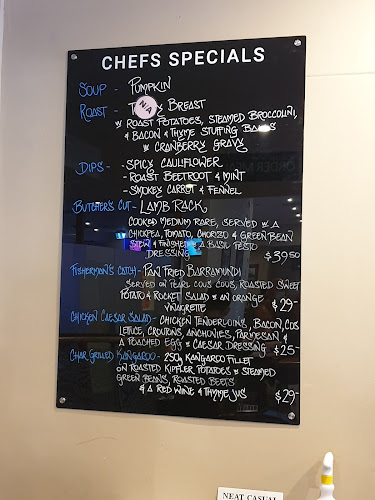 CHEFS SPECIALS
SOUP - PUMPKIN
ROAST - BREAST
N/A
W ROAST POTATOES, STEAMED BROCCOLINI,
& BACON & THYME STUFFING BALLS
W CRANBERRY GRAVY
DIPS - - SPICY CAULIFLOWER
- ROAST BEETROOT & MINT
- SMOKEY CARROT & FENNEL
BUTCHER'S CUT - LAMB RACK,
COOKED MEDIUM RARE, SERVED W A
CHICKPEA, TOMATO, CHORIZO & GREEN BEAN
STEW & FINISHED W A BASIL PESTO
DRESSING $39.50
FISHERMAN'S CATCH - PAN FRIED BARRAMUNDI
SERVED ON PEARL COUS COUS, ROASTED SWEET
POTATO & ROCKET SALAD W AN ORANGE
VINAIGRETTE $29-
CHICKEN CAESAR SALAD - CHICKEN TENDERLOINS, BACON, COS
LETTICE, CROUTONS, ANCHOVIES, PARMESAN &
A POACHED EGG W CAESAR DRESSING $25-
CHAR GRILLED KANGAROO - 250g KANGAROO FILLET
ON ROASTED KIPFLER POTATOES W STEAMED
GREEN BEANS, ROASTED BEETS
& A RED WINE & THYME JUS $29-
NEAT CASUAL